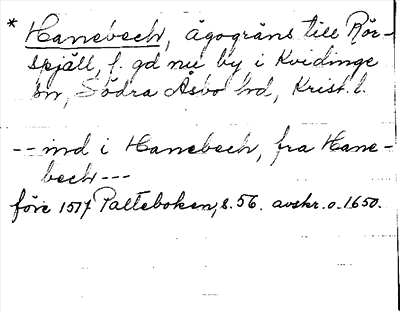 * Hanebech, ägogräns till Rör-
spjäll, f. gd nu by i Kvidinge
sn, Södra Åsbo hd, Krist. l.
-- md i Hanebech, fra Hane-
bech ---
före 1517 Palteboken, s. 56. avskr. o. 1650.